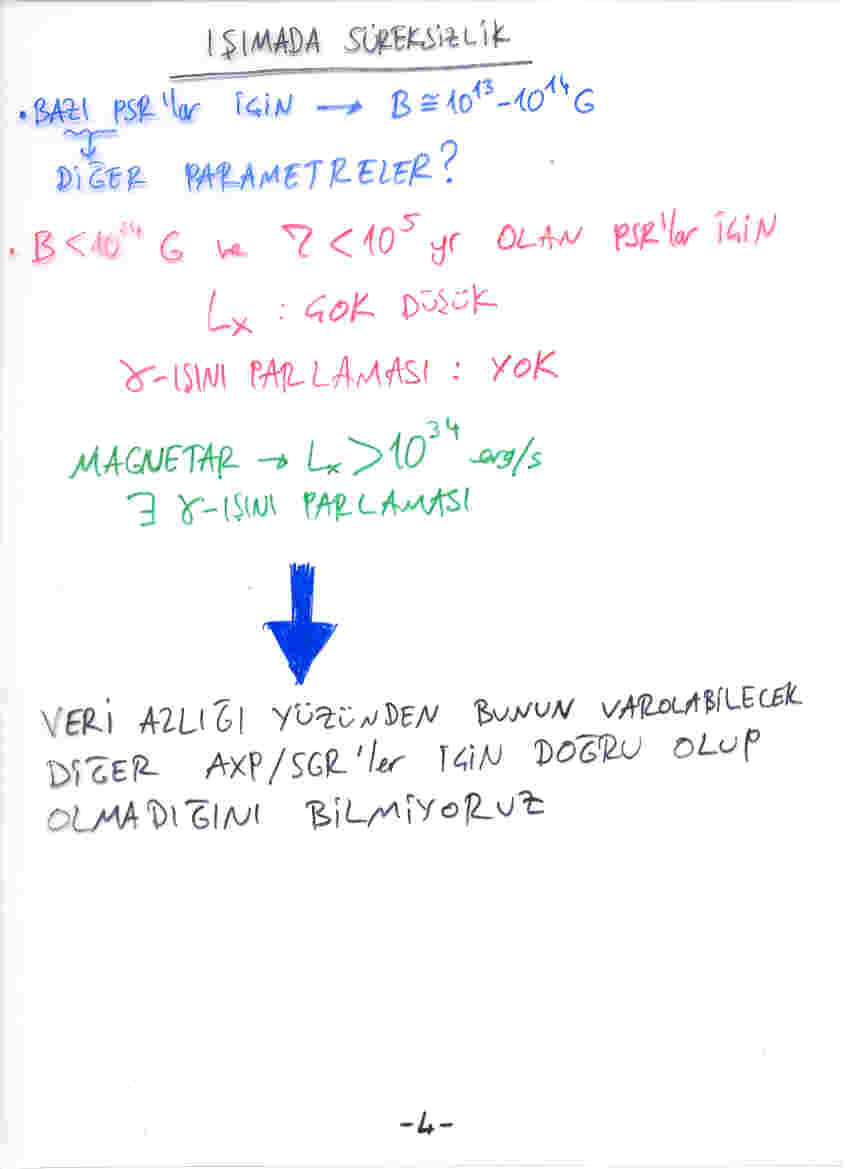 IŞIMADA SÜREKSİZLİK
• BAZI PSR'lar İÇİN → B ≅ 10¹³ - 10¹⁴ G
DİĞER PARAMETRELER?
• B < 10¹⁴ G ve τ < 10⁵ yr OLAN PSR'lar İÇİN
Lx : ÇOK DÜŞÜK
γ-IŞINI PARLAMASI : YOK
MAGNETAR → Lx > 10³⁴ erg/s
∃ γ-IŞINI PARLAMASI
VERİ AZLIĞI YÜZÜNDEN BUNUN VAROLABİLECEK
DİĞER AXP/SGR'ler İÇİN DOĞRU OLUP
OLMADIĞINI BİLMİYORUZ
-4-